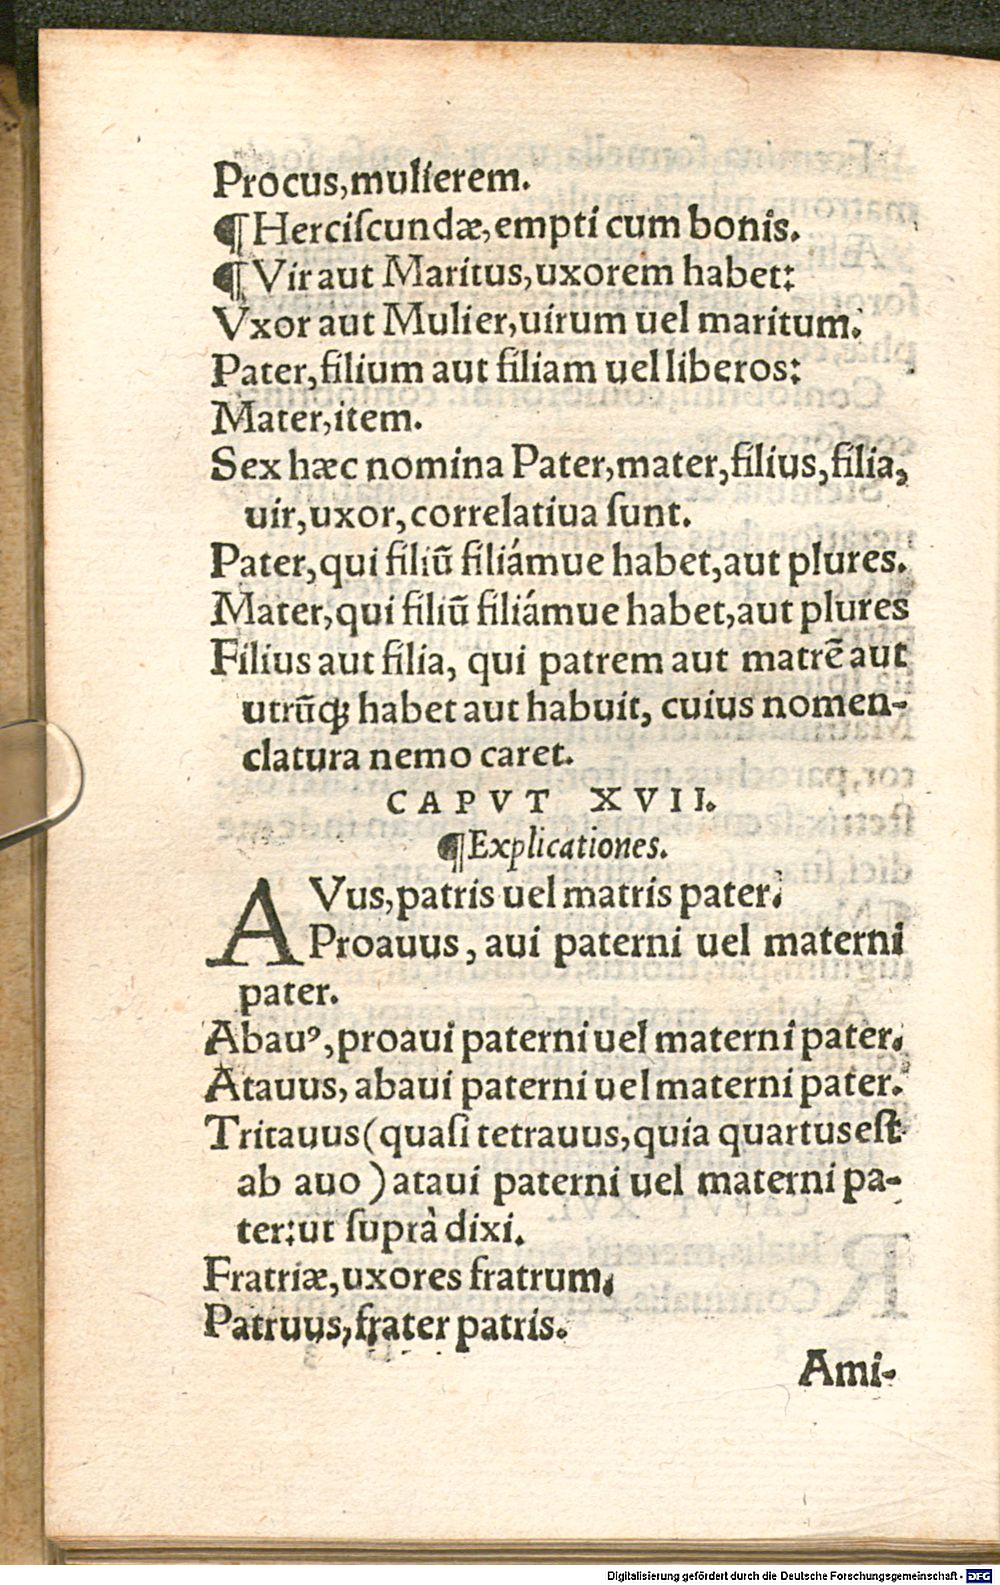 Procus,mulierem.
¶Herciſcundæ,empti cum bonis.
¶Vir aut Maritus,uxorem habet:
Vxor aut Mulier,uirum uel maritum:
Pater,filium aut filiam uel liberos:
Mater,item.
Sex hæc nomina Pater,mater,filius,filia,
uir,uxor,correlatiua ſunt.
Pater,qui filiū filiámue habet,aut plures.
Mater,qui filiū filiámue habet,aut plures
Filius aut filia, qui patrem aut matrē aut
utrūqꝫ habet aut habuit, cuius nomen-
clatura nemo caret.
CAPVT XVII.
¶Explicationes.
AVus,patris uel matris pater.
Proauus, aui paterni uel materni
pater.
Abauꝰ,proaui paterni uel materni pater.
Atauus, abaui paterni uel materni pater.
Tritauus(quaſi tetrauus,quia quartus eſt
ab auo ) ataui paterni uel materni pa-
ter:ut ſuprà dixi.
Fratriæ,uxores fratrum.
Patruus,frater patris.
Ami-
Digitalisierung gefördert durch die Deutsche Forschungsgemeinschaft - DFG